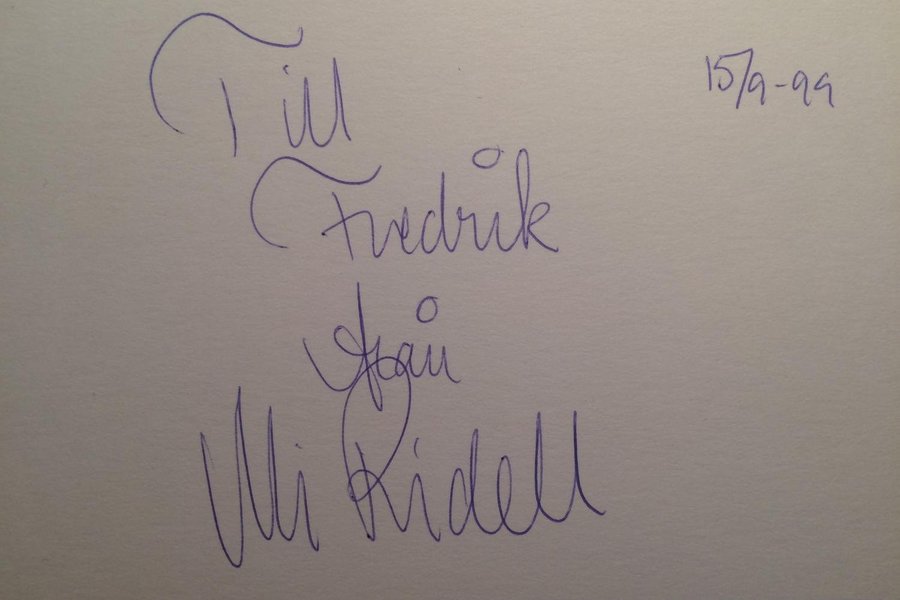 15/9-99
Till
Fredrik
från
Ulli Ridell